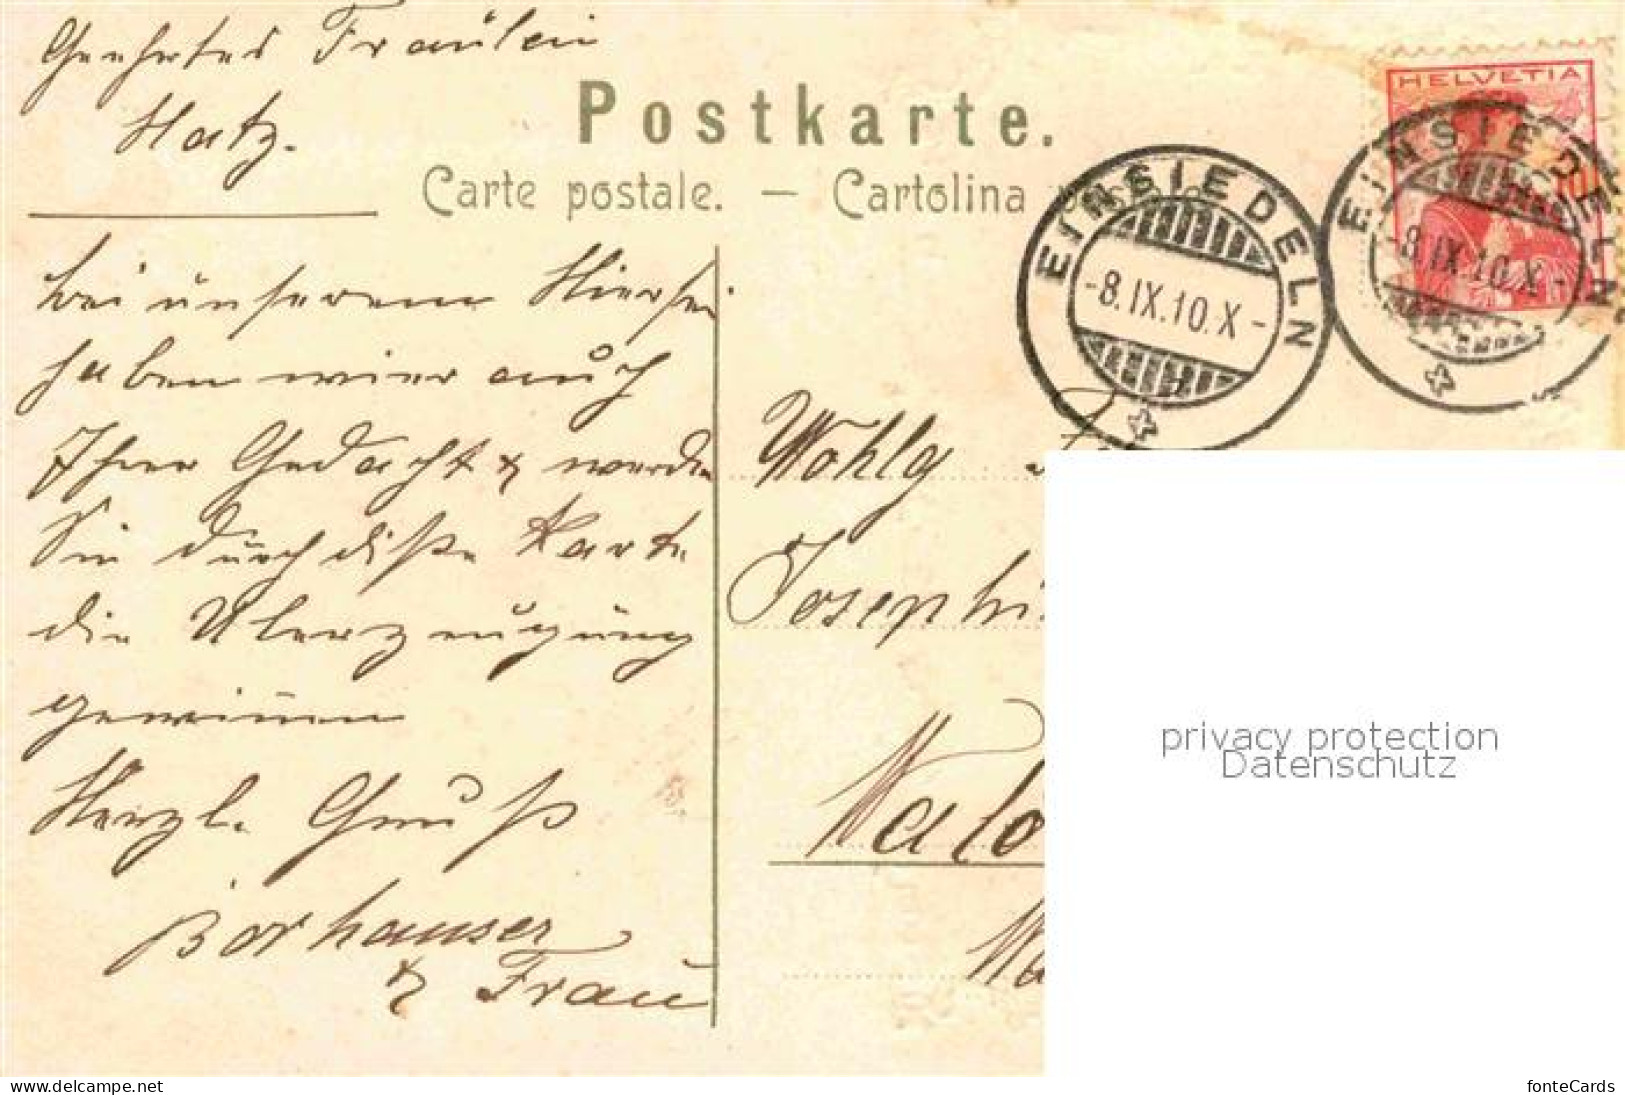 Geehrtes Fräulein
Hatz.
Postkarte.
Carte postale. — Cartolina
HELVETIA
EINSIEDELN
-8.IX.10.X-
EINSIEDELN
-8.IX.10.X-
bei unserem Hiersei
haben wier auch
Ihrer Gedacht & werden
Sie durch diße Karte
die Überzeugung
gewinnen
Herzl. Gruß
Borhauser
& Frau
Wohlg
Josephi
privacy protection
Datenschutz
www.delcampe.net
fonteCards